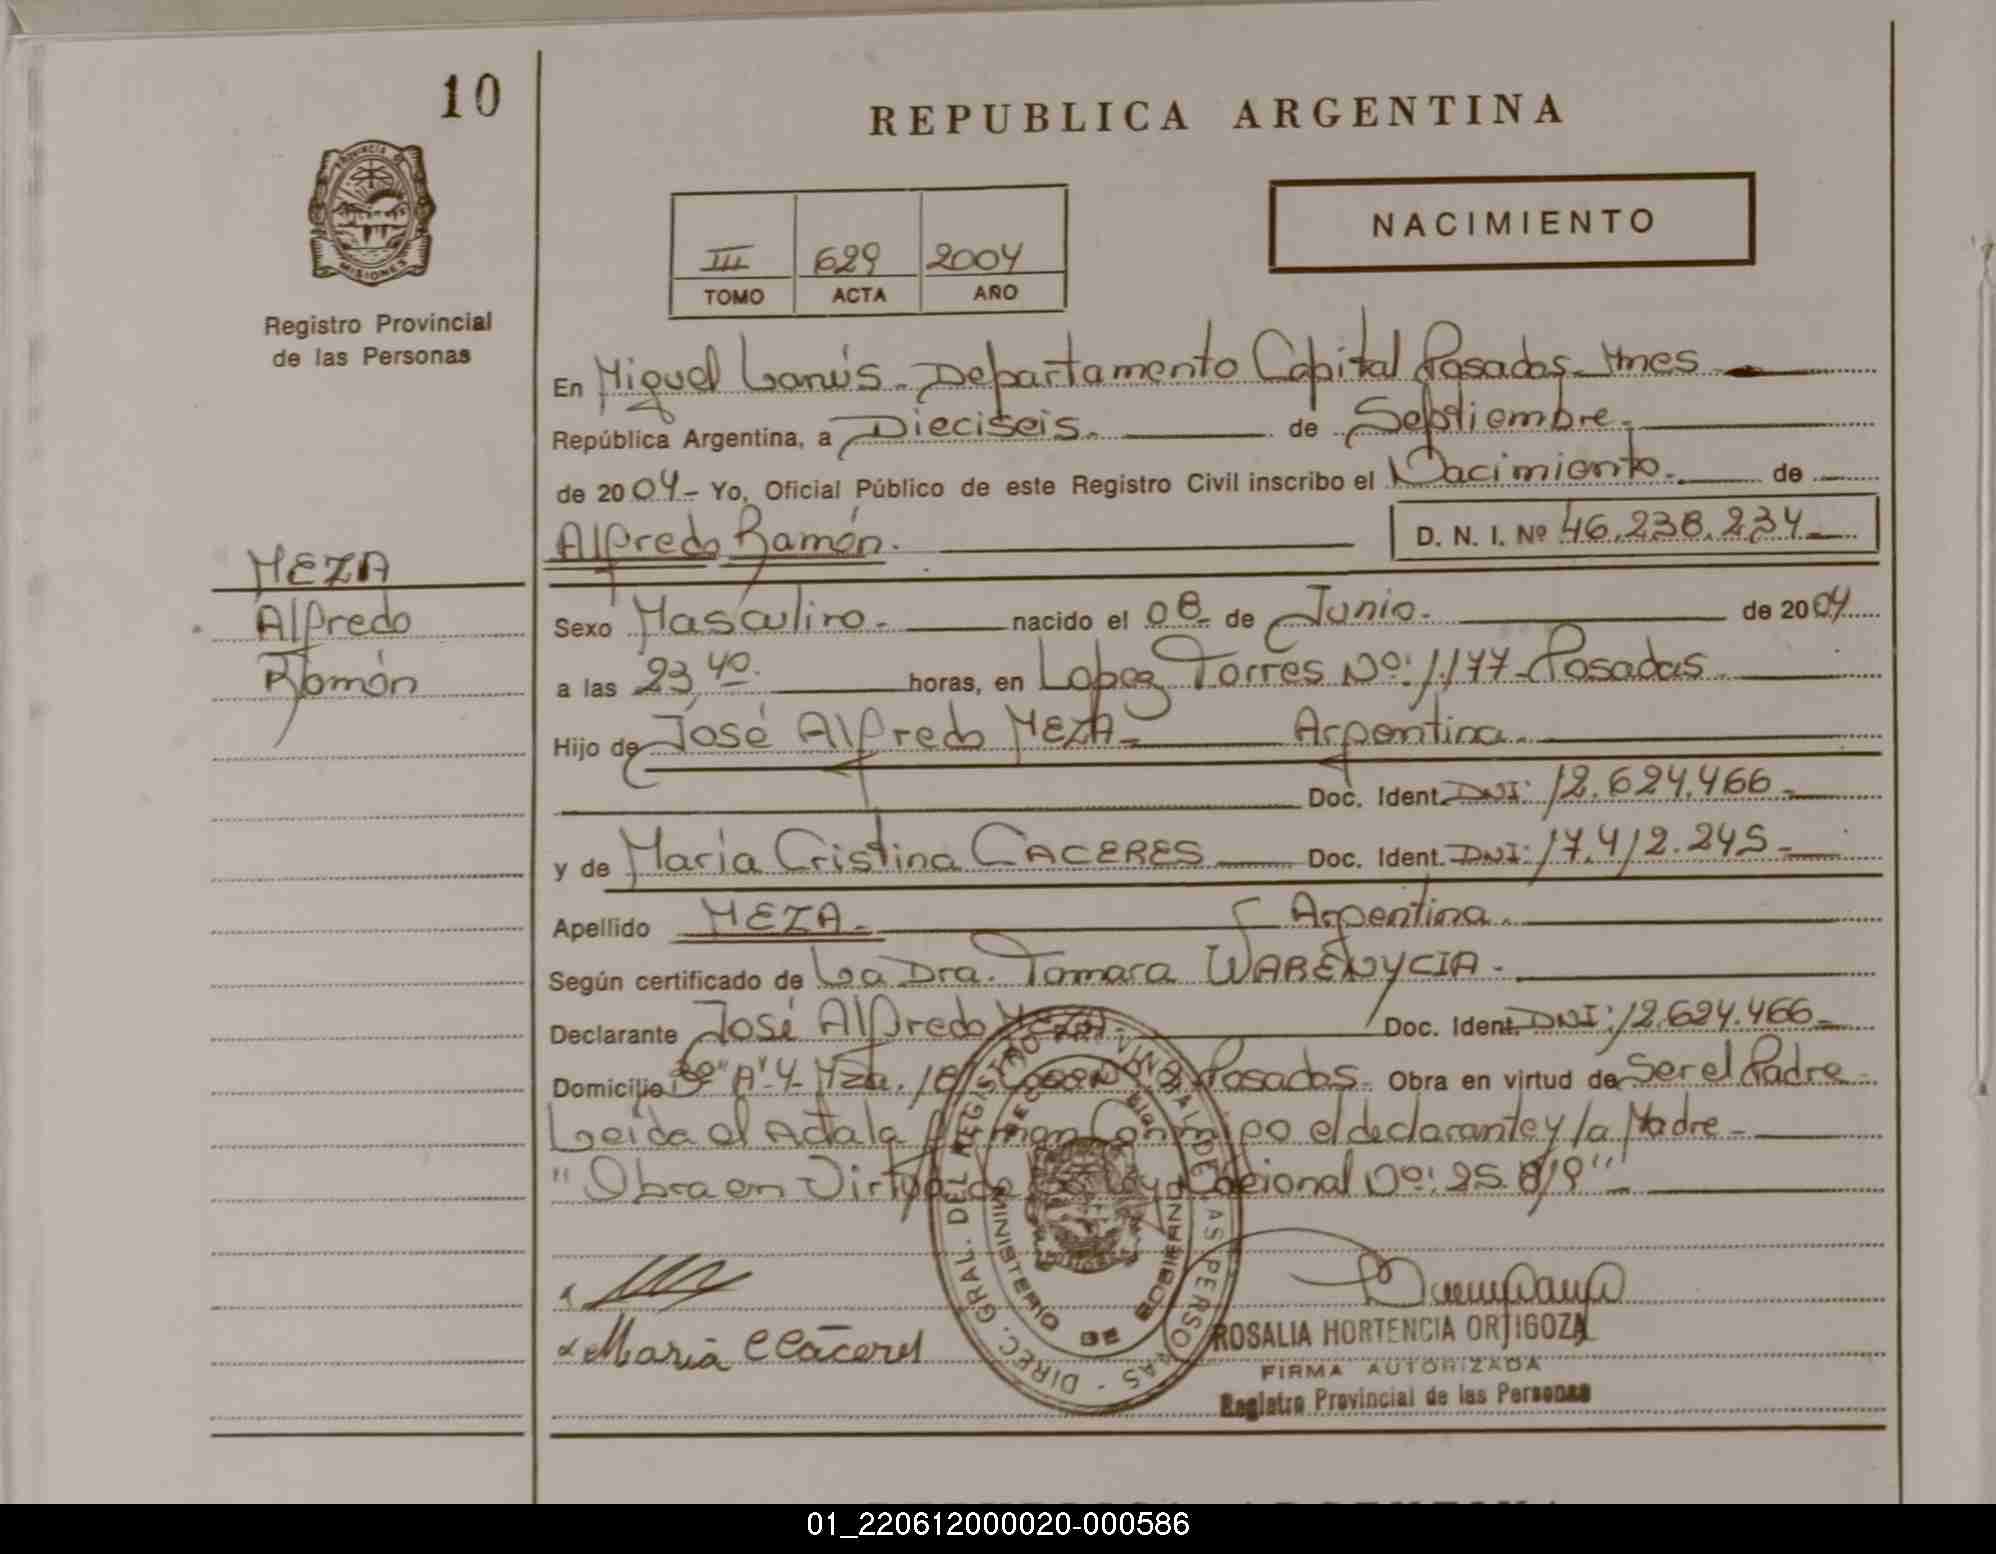 10
REPUBLICA ARGENTINA
PROVINCIA DE
MISIONES
NACIMIENTO
III 629 2004
TOMO ACTA AÑO
Registro Provincial
de las Personas
En Miguel Lanús - Departamento Capital Posadas - Mnes
República Argentina, a Dieciseis. de Septiembre.
de 2004 - Yo, Oficial Público de este Registro Civil inscribo el Nacimiento. de
Alfredo Ramón. D. N. I. Nº 46.238.234
MEZA
Alfredo
Ramón
Sexo Masculino - nacido el 08 - de Junio. de 2004
a las 23,40. horas, en Lopez Torres Nº: 1177 - Posadas
Hijo de José Alfredo MEZA - Argentina
Doc. Ident. DNI: 12.624.466 -
y de María Cristina CACERES Doc. Ident. DNI: 17.412.245 -
Apellido MEZA - Argentina
Según certificado de La Dra. Tamara WARENYCIA -
Declarante José Alfredo MEZA - Doc. Ident. DNI: 12.624.466 -
Domicilio "A" 4 - Mza. Posadas - Obra en virtud de Ser el Padre -
Leida el Acta la conmigo el declarante y la Madre -
"Obra en Virtud de Ley Nacional Nº: 25.819"
DIREC. GRAL. DEL REGISTRO PROVINCIAL DE LAS PERSONAS
MINISTERIO DE GOBIERNO
Maria C Cáceres
ROSALIA HORTENCIA ORTIGOZA
FIRMA AUTORIZADA
Registro Provincial de las Personas
01_220612000020-000586